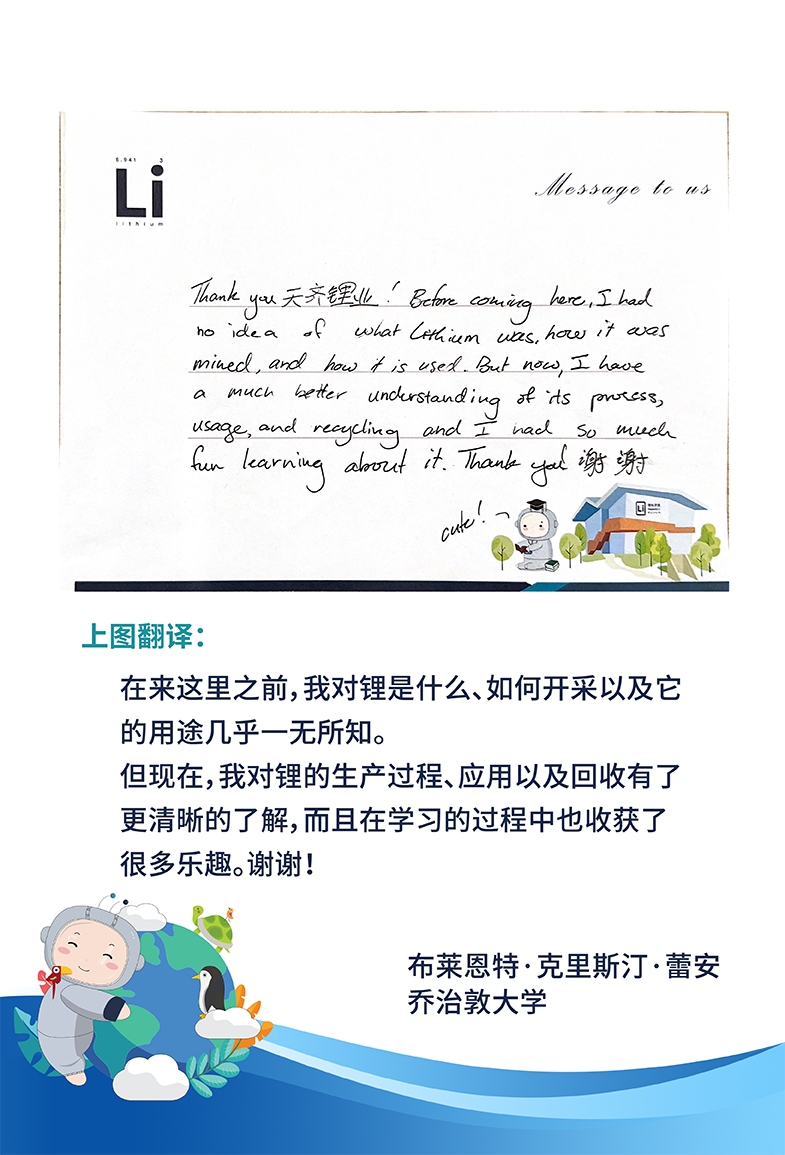 6.941 3
Li
lithium
Message to us
Thank you 天齐锂业! Before coming here, I had
no idea of what Lithium was, how it was
mined, and how it is used. But now, I have
a much better understanding of its process,
usage, and recycling and I had so much
fun learning about it. Thank you! 谢谢
cute!
Li
上图翻译：
在来这里之前，我对锂是什么、如何开采以及它
的用途几乎一无所知。
但现在，我对锂的生产过程、应用以及回收有了
更清晰的了解，而且在学习的过程中也收获了
很多乐趣。谢谢！
布莱恩特·克里斯汀·蕾安
乔治敦大学